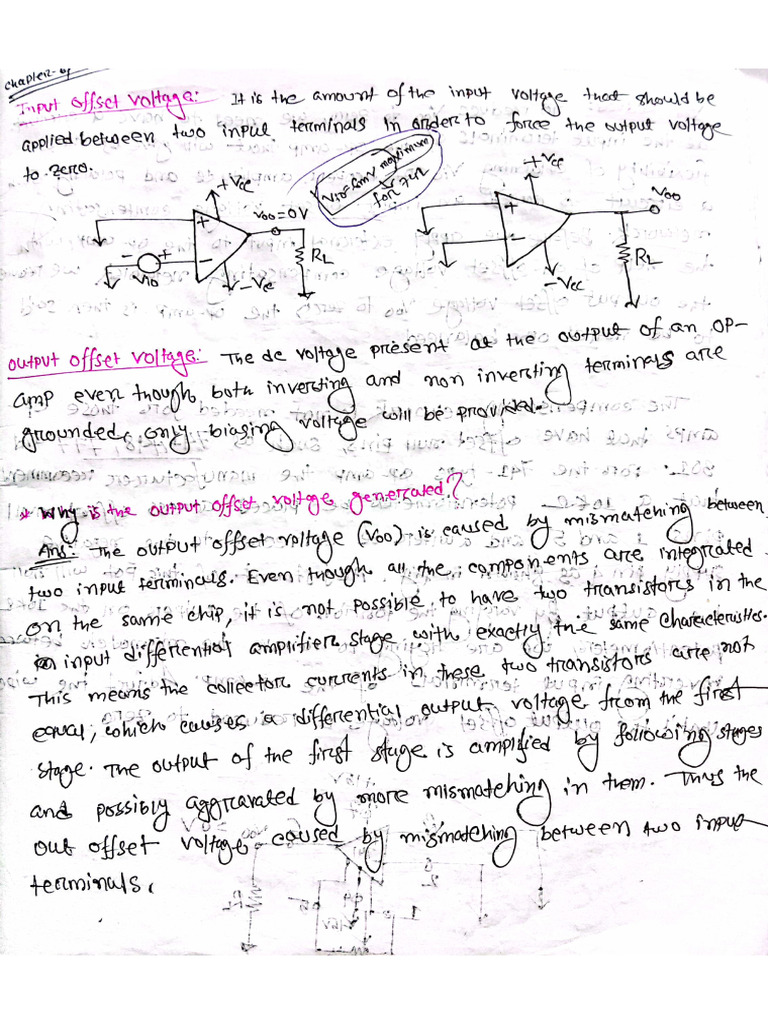 Chapter-
Input offset voltage: It is the amount of the input voltage that should be
applied between two input terminals in order to force the output voltage
to zero.
Vio=6mV maximum
for 741
+Vcc
Voo=0V
+
-
RL
- +
Vio
-Vcc
+Vcc
Voo
+
-
RL
-Vcc
Output offset voltage: The dc voltage present at the output of an OP-
amp even though both inverting and non inverting terminals are
grounded, only biasing voltage will be provided.
* Why is the output offset voltage generated?
Ans: The output offset voltage (Voo) is caused by mismatching between
two input terminals. Even though all the components are integrated
on the same chip, it is not possible to have two transistors in the
input differential amplifier stage with exactly the same characteristics.
This means the collector currents in these two transistors are not
equal, which causes a differential output voltage from the first
stage. The output of the first stage is amplified by following stages
and possibly aggravated by more mismatching in them. Thus the
out offset voltage caused by mismatching between two input
terminals.